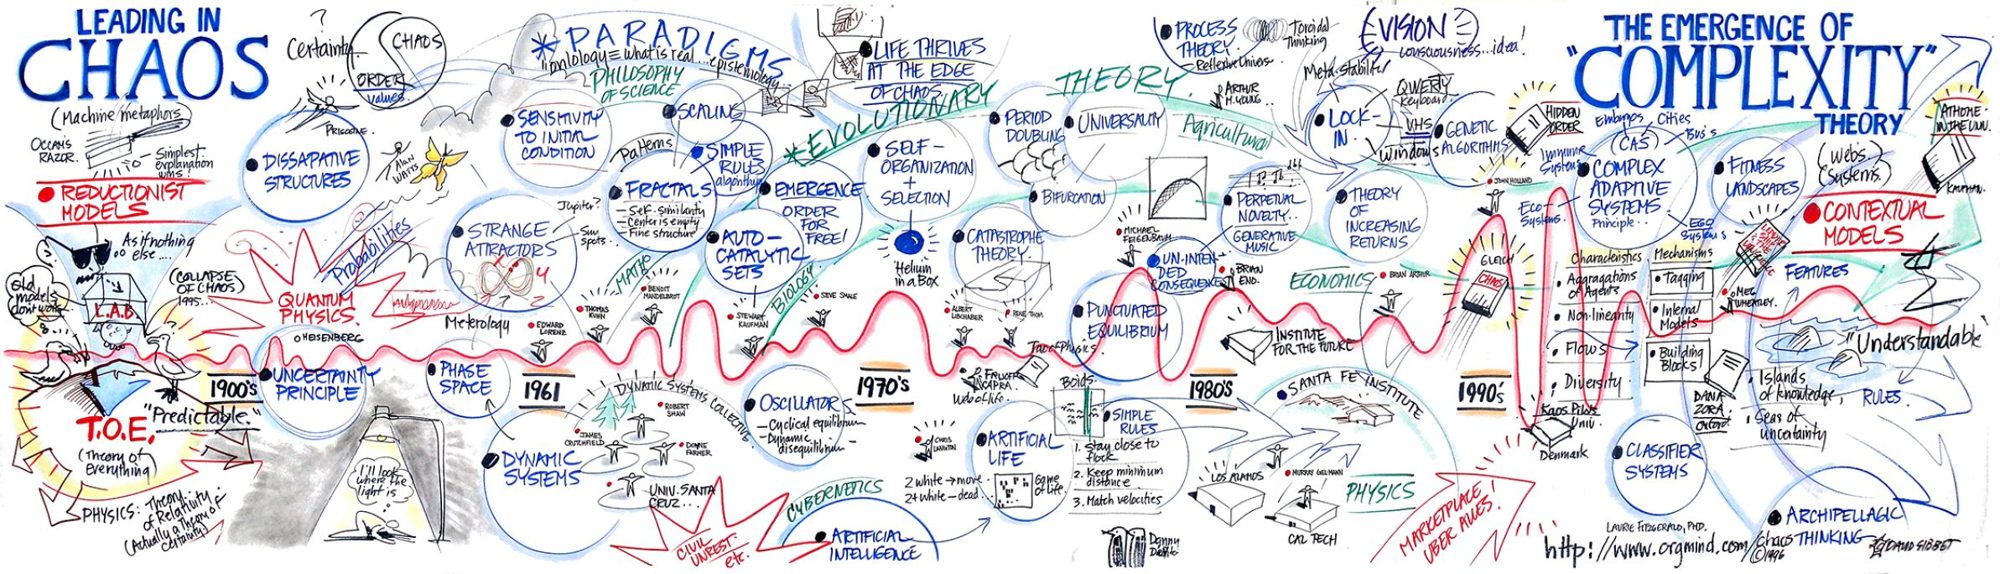 LEADING IN
CHAOS
Certainty
?
CHAOS
ORDER
Values
(Machine metaphors
OCCAMS
RAZOR.
Simplest
explanation
wins!
REDUCTIONIST
MODELS
As if nothing
else....
Old
models
don't work
L.A.B.
(COLLAPSE
OF CHAOS)
1995...
T.O.E.
(Theory of
Everything)
"Predictable"
PHYSICS: Theory
of Relativity
(Actually a Theory of
Certainty)
1900's
PRIGOGINE.
DISSAPATIVE
STRUCTURES
Alan
WATTS
Probabilities
QUANTUM
PHYSICS.
HEISENBERG
UNCERTAINTY
PRINCIPLE
I'll look
where the
light is
*PARADIGMS
Ontology = What is real...epistemology
PHILOSOPHY
OF SCIENCE
SENSITIVITY
TO INITIAL
CONDITION
SCALING
Patterns
SIMPLE
RULES
algorithm
FRACTALS
- Self-similarity
- Center is empty
- Fine structure
Jupiter?
Sun
spots..
STRANGE
ATTRACTORS
Meterology
EDWARD
LORENZ
THOMAS
KUHN
MATH
BENOIT
MANDELBROT
PHASE
SPACE
1961
DYNAMIC
SYSTEMS
DYNAMIC SYSTEMS COLLECTIVE
ROBERT
SHAW
JAMES
CRUTCHFIELD
DOYNE
FARMER
UNIV. SANTA
CRUZ...
CIVIL
UNREST.
etc.
LIFE THRIVES
AT THE EDGE
OF CHAOS.
*EVOLUTIONARY
THEORY
EMERGENCE
ORDER
FOR
FREE!
AUTO-
CATALYTIC
SETS
STEWART
KAUFMAN
BIOLOGY
STEVE SMALE
SELF-
ORGANIZATION
+
SELECTION
Helium
in a Box
OSCILLATOR
- Cyclical equilibrium
- Dynamic
disequilibrium
1970's
CYBERNETICS
ARTIFICIAL
INTELLIGENCE
PERIOD
DOUBLING
UNIVERSALITY
BIFURCATION
CATASTROPHE
THEORY.
ALBERT
LIBCHABER
RENE THOM
Tao of Physics.
FRITJOF
CAPRA.
Web of life.
CHRIS
LANGTON
ARTIFICIAL
LIFE
2 white → move
2+ white - dead
Game
of life.
Boids.
SIMPLE
RULES
1. Stay close to
flock
2. Keep minimum
distance
3. Match velocities
PROCESS
THEORY.
- Reflexive Univers
Toroidal
Thinking
ARTHUR
M. YOUNG
Agricultural
MICHAEL
FEIGENBAUM
UN-INTEN-
DED
CONSEQUENCE
PUNCTUATED
EQUILIBRIUM
PERPETUAL
NOVELTY..
GENERATIVE
MUSIC
BRIAN
ENO.
1980's
INSTITUTE
FOR THE FUTURE
SANTA FE INSTITUTE
LOS ALAMOS
MURRAY GELMANN
CAL TECH
PHYSICS
VISION
consciousness...idea!
Meta-stability
LOCK-
IN.
QWERTY
Keyboard
VHS
Windows
GENETIC
ALGORITHMS
THEORY
OF
INCREASING
RETURNS
ECONOMICS
BRIAN ARTHUR
JOHN HOLLAND
HIDDEN
ORDER
GLEICK
CHAOS
1990's
MARKETPLACE
UBER ALLES!
Kaos Pilots
Univ.
Denmark
THE EMERGENCE OF
"COMPLEXITY"
THEORY
Embryos
Cities
Bus's
Immune
Systems
Eco-
Systems
(CAS)
COMPLEX
ADAPTIVE
SYSTEMS
Principle..
EGO
Systems
Characteristics
Aggragations
of Agents
Non-linearity
Flows
Diversity
Mechanisms
Tagging
Internal
Models
Building
Blocks!
FITNESS
LANDSCAPES
(Web's
Systems.)
AT HOME
IN THE UNIV.
KAUFMAN.
CONTEXTUAL
MODELS
MEG
WHEATLEY.
FEATURES
"Understandable"
DANA
ZOHAR
Islands
of knowledge,
Seas of
uncertainty
RULES
CLASSIFIER
SYSTEMS
ARCHIPELLAGIC
THINKING
LAURIE FITZGERALD, PHD.
http://www.orgmind.com/chaos
©1996
DAVID SIBBET